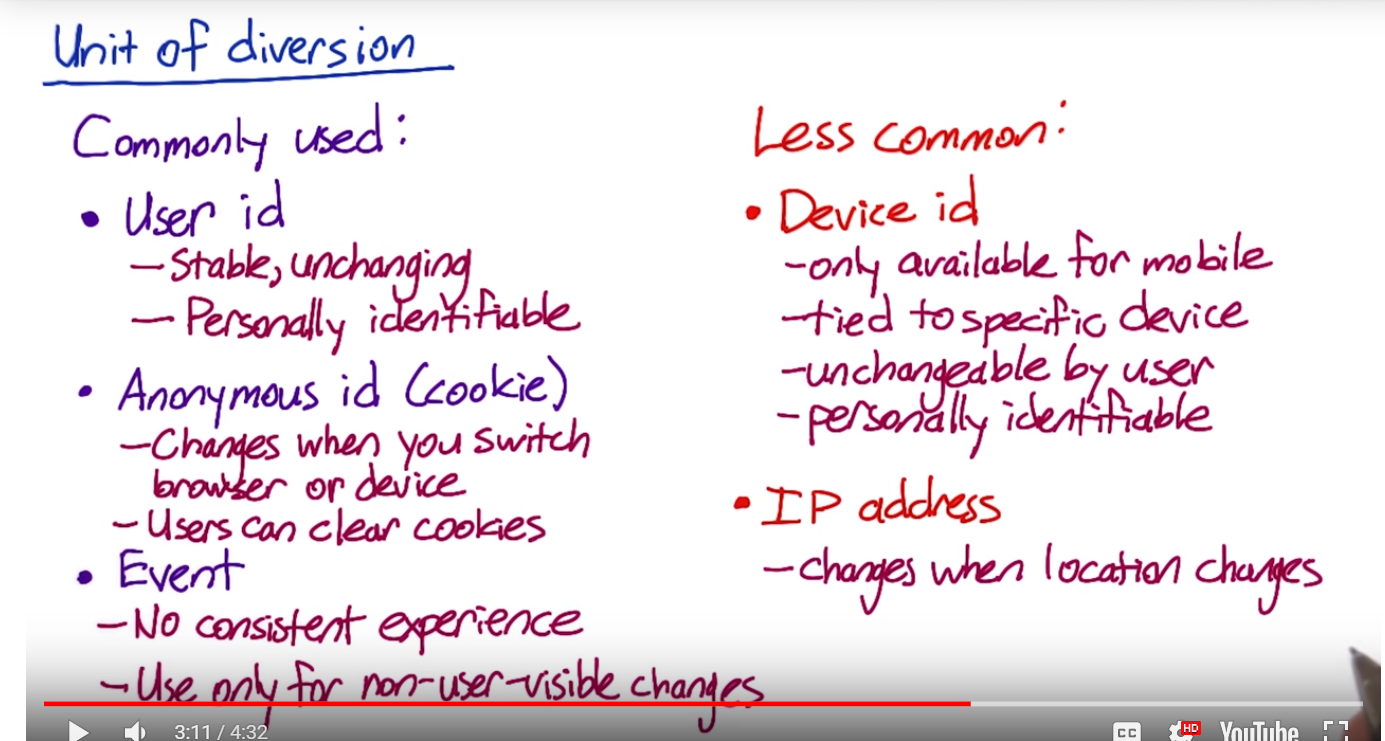 Unit of diversion
Commonly used:
• User id
– Stable, unchanging
– Personally identifiable
• Anonymous id (cookie)
– Changes when you switch
browser or device
– Users can clear cookies
• Event
– No consistent experience
– Use only for non-user-visible changes
Less common:
• Device id
– only available for mobile
– tied to specific device
– unchangeable by user
– personally identifiable
• IP address
– changes when location changes
3:11 / 4:32
CC
HD
YouTube